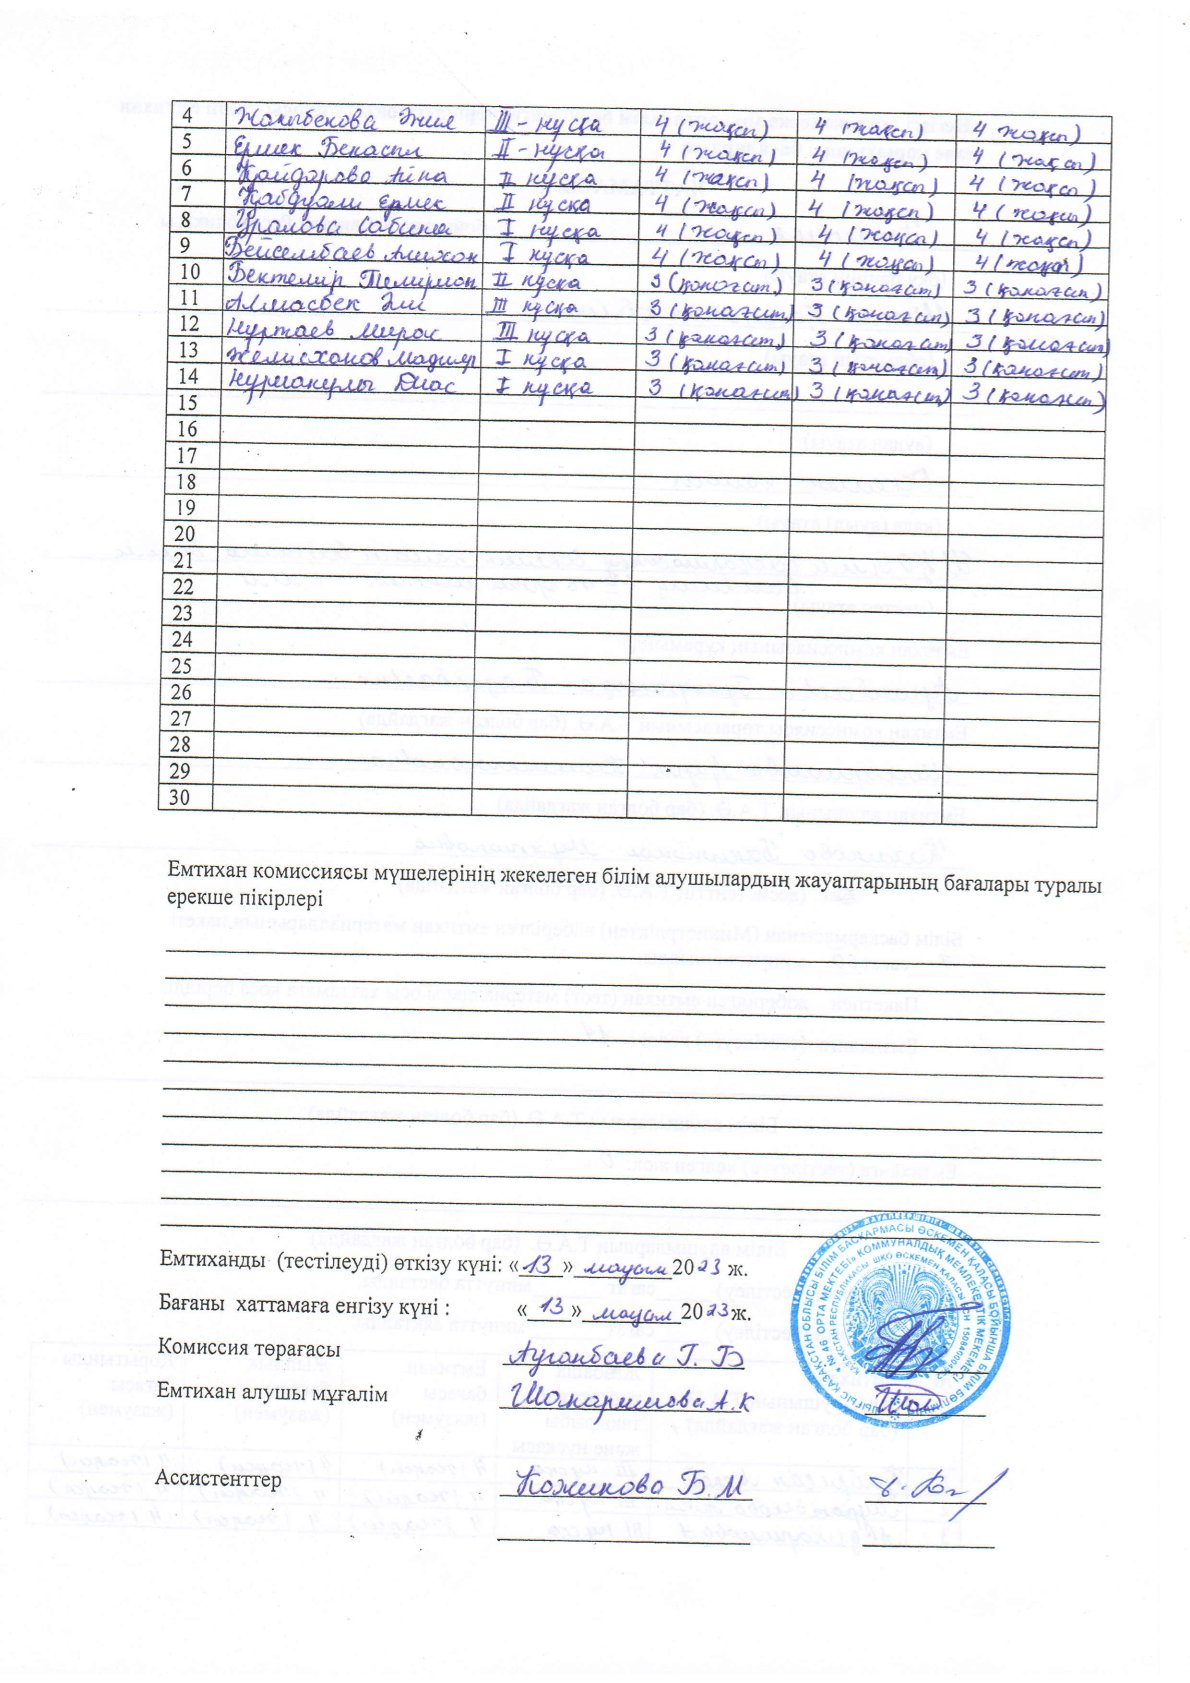 4 Жанибекова Эмил III - нұсқа 4 (жақсы) 4 (жақсы) 4 жақсы)
5 Ермек Бекасыл II - нұсқа 4 (жақсы) 4 (жақсы) 4 (жақсы)
6 Қайдарова Айна II нұсқа 4 (жақсы) 4 (жақсы) 4 (жақсы)
7 Қабдуали Ермек II нұсқа 4 (жақсы) 4 (жақсы) 4 (жақсы)
8 Уралова Сабина I нұсқа 4 (жақсы) 4 (жақсы) 4 (жақсы)
9 Бейсембаев Алихан I нұсқа 4 (жақсы) 4 (жақсы) 4 (жақсы)
10 Бектемир Темирлан II нұсқа 3 (қанағат.) 3 (қанағат) 3 (қанағат)
11 Алмасбек Эли III нұсқа 3 (қанағат.) 3 (қанағат) 3 (қанағат)
12 Нуртаев Мирас III нұсқа 3 (қанағат.) 3 (қанағат) 3 (қанағат)
13 Желисханов Мадияр I нұсқа 3 (қанағат) 3 (қанағат) 3 (қанағат)
14 Нурланулы Диас I нұсқа 3 (қанағат) 3 (қанағат) 3 (қанағат)
15
16
17
18
19
20
21
22
23
24
25
26
27
28
29
30
Емтихан комиссиясы мүшелерінің жекелеген білім алушылардың жауаптарының бағалары туралы
ерекше пікірлері
Емтиханды (тестілеуді) өткізу күні: «13» маусым 2023 ж.
Бағаны хаттамаға енгізу күні : «13» маусым 2023ж.
Комиссия төрағасы Ауганбаева Г. Б
Емтихан алушы мұғалім Шакаримова А.К
Ассистенттер Кожикова Б.М